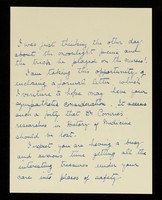 I was just thinking the other day
about the moonlight picnic and
the trick he played on the nurses!
I am taking this opportunity of
enclosing a formal letter which
I venture to hope may have your
sympathetic consideration. It seems
such a pity that Dr Comrie's
researches in history of Medicine
should be lost.
I expect you are having a busy
and anxious time getting all the
interesting treasures under your
care into places of safety.